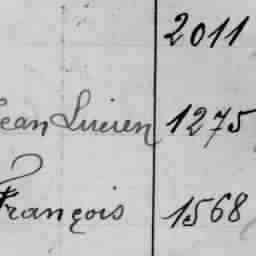 2011
Jean Lucien 1275
François 1568